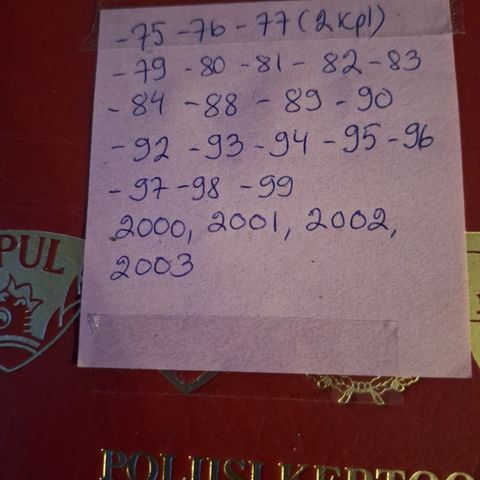 -75 -76 -77 (2kpl)
-79 -80 -81 - 82 -83
-84 -88 - 89 -90
-92 -93 -94 -95 -96
-97 -98 -99
2000, 2001, 2002,
2003
PUL
POLIISI KERTOO